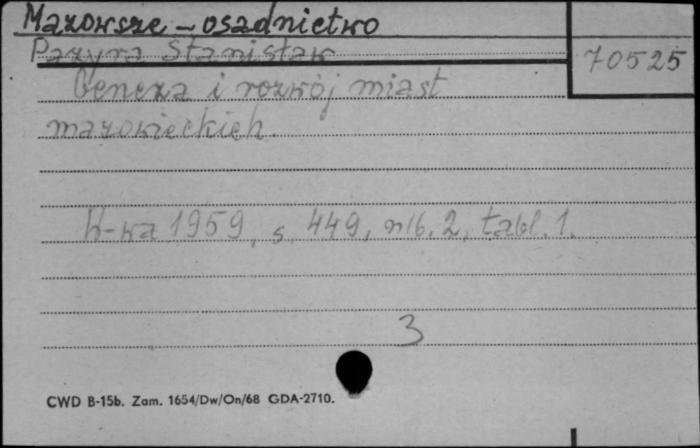 Mazowsze – osadnictwo
Pazyra Stanisław
70525
Geneza i rozwój miast
mazowieckich.
W-wa 1959, s. 449, nlb. 2, tabl. 1.
3
CWD B-15b. Zam. 1654/Dw/On/68 GDA-2710.